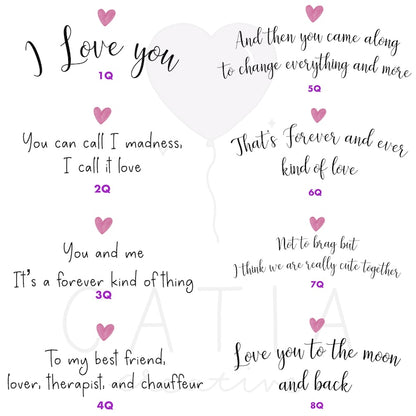 I Love you
1Q
You can call I madness,
I call it love
2Q
You and me
It's a forever kind of thing
3Q
To my best friend,
lover, therapist, and chauffeur
4Q
And then you came along
to change everything and more
5Q
That's Forever and ever
kind of love
6Q
Not to brag but
I think we are really cute together
7Q
Love you to the moon
and back
8Q
CATIA